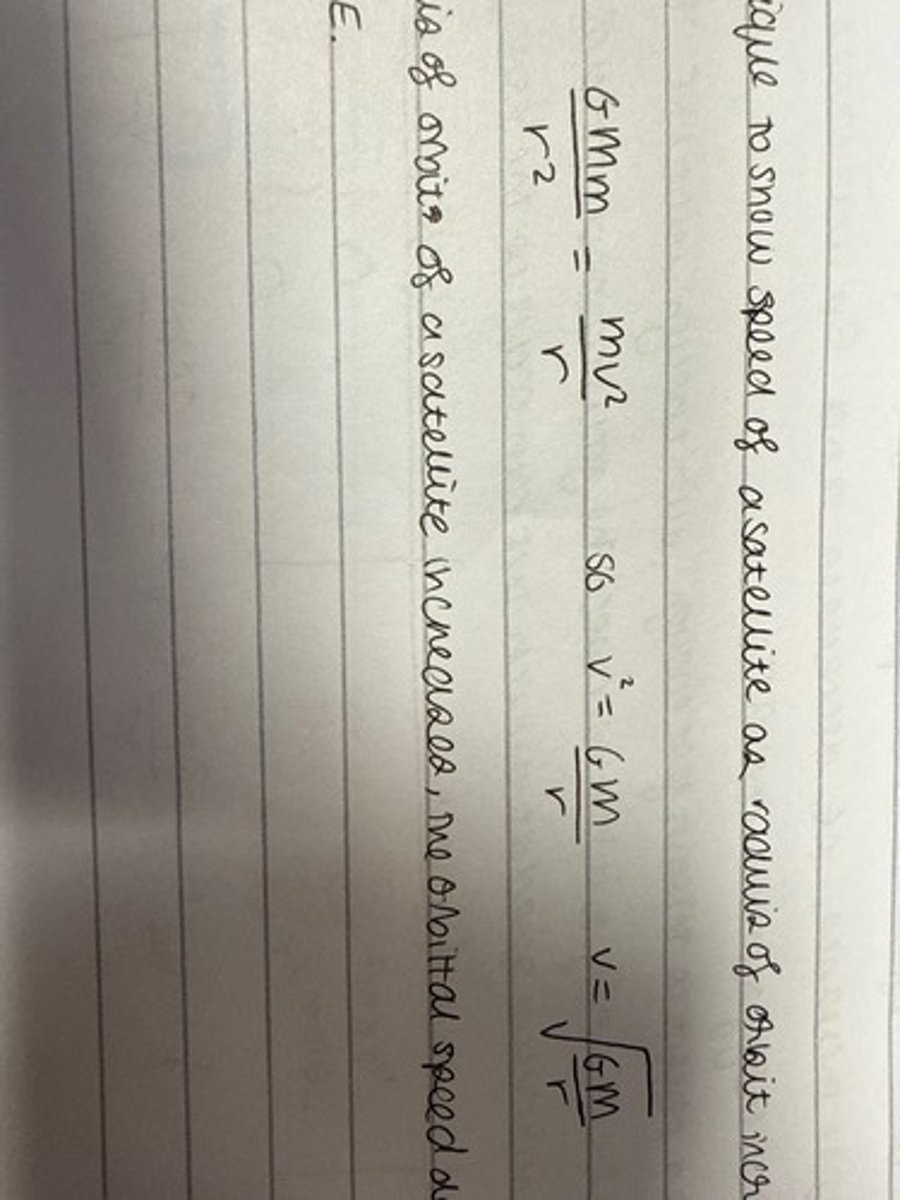 ique to show speed of a satellite as radius of orbit incr
GMm/r² = mv²/r so v² = GM/r v = √(GM/r)
is of orbits of a satellite increases, the orbittal speed d
E.